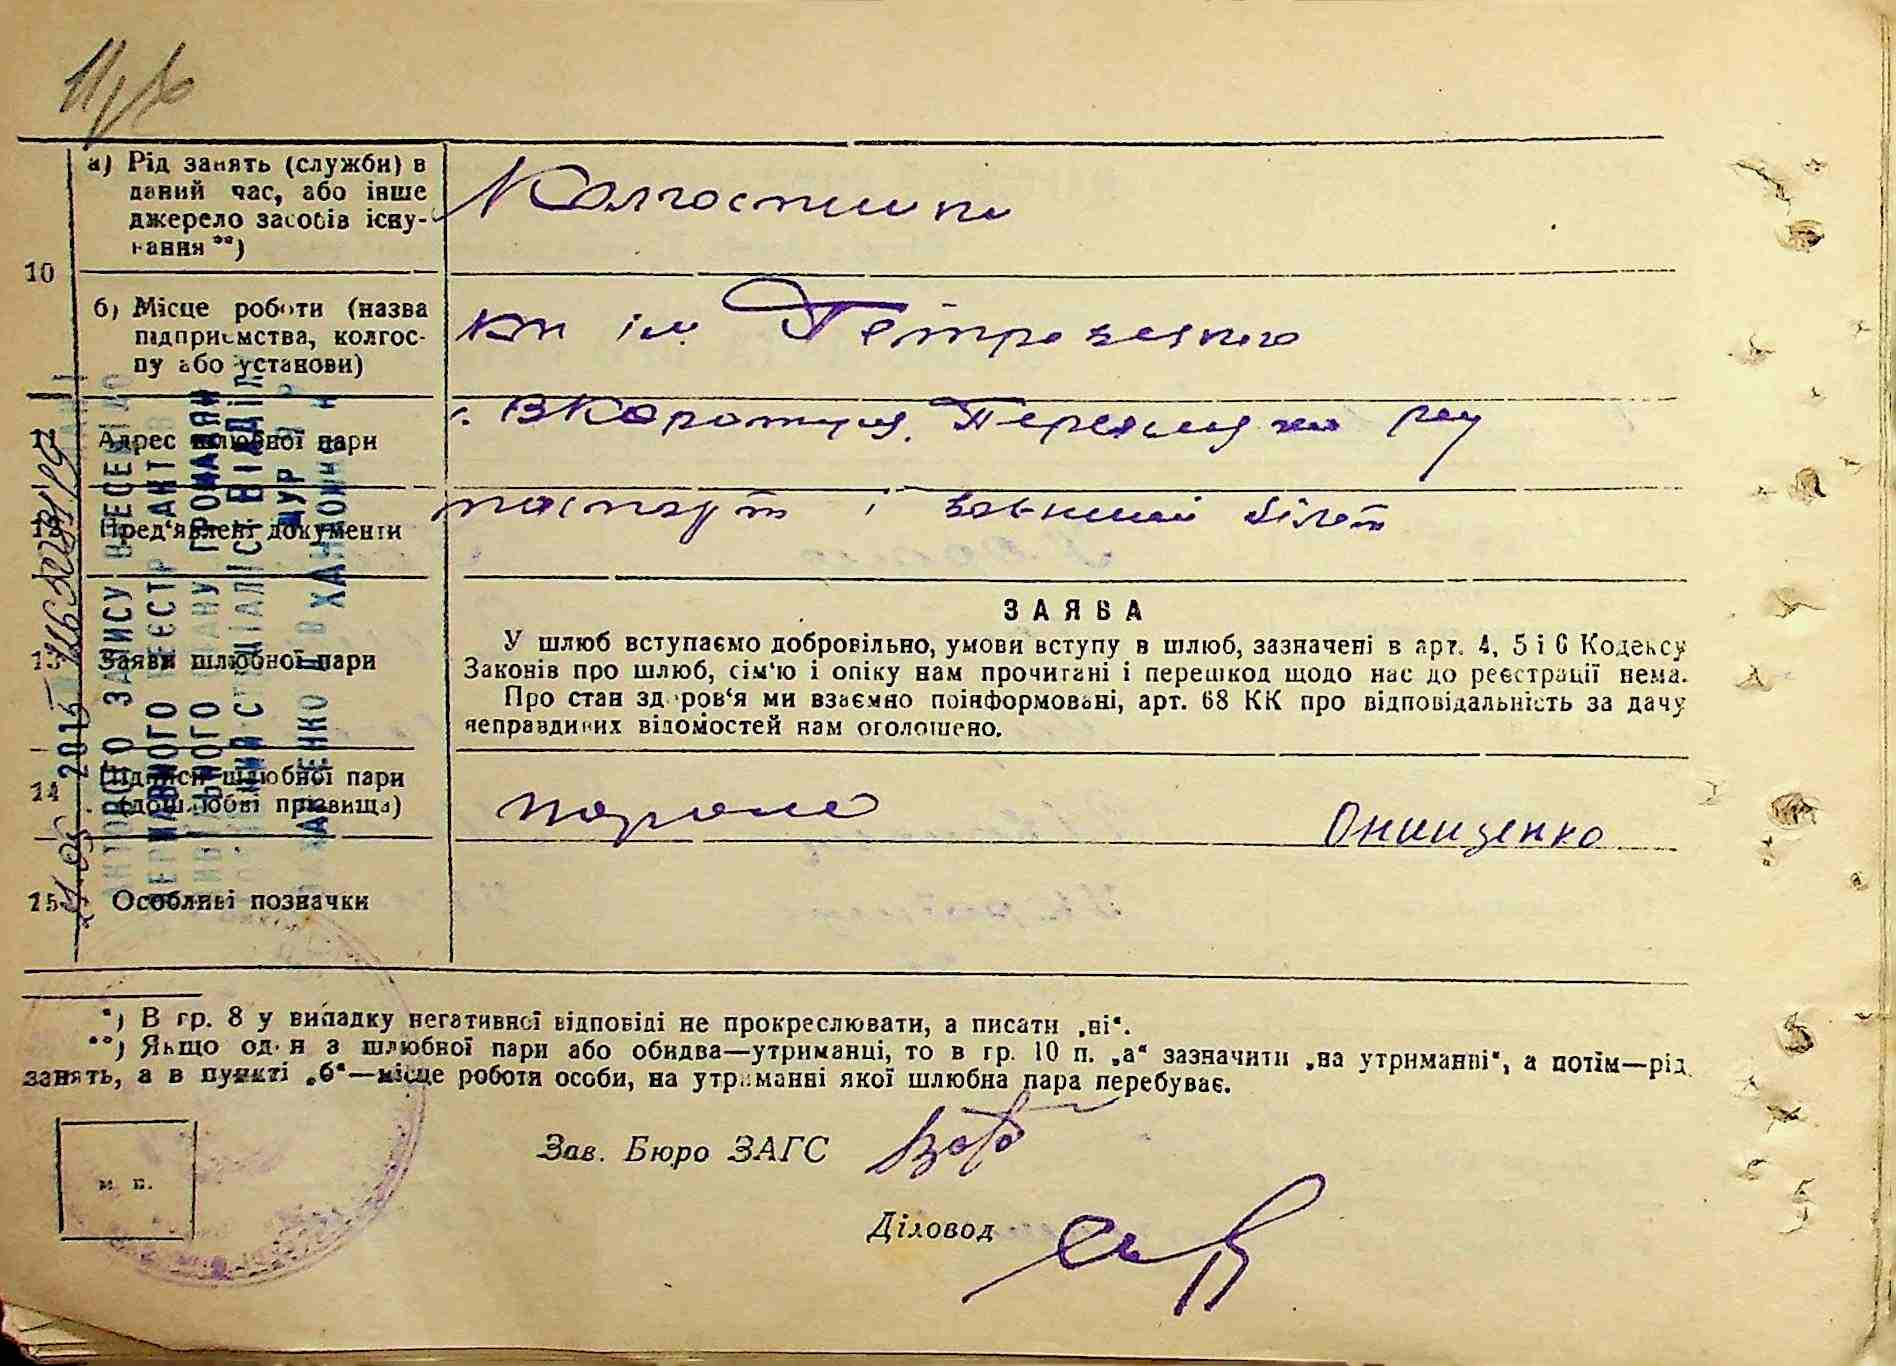 а) Рід занять (служби) в
даний час, або інше
джерело засобів існу-
вання **)
Колгоспники
10
б) Місце роботи (назва
підприємства, колгос-
пу або установи)
кп ім. Петровського
11 Адрес шлюбної пари
с. В Каратуль, Переяславський р-н
12 Пред'явлені документи
паспорт і воєнний білет
13 Заяви шлюбної пари
ЗАЯВА
У шлюб вступаємо добровільно, умови вступу в шлюб, зазначені в арт. 4, 5 і 6 Кодексу
Законів про шлюб, сім'ю і опіку нам прочитані і перешкод щодо нас до реєстрації нема.
Про стан здоров'я ми взаємно поінформовані, арт. 68 КК про відповідальність за дачу
неправдивих відомостей нам оголошено.
14 Підписи шлюбної пари
(дошлюбні прізвища)
Онищенко
15 Особливі позначки
*) В гр. 8 у випадку негативної відповіді не прокреслювати, а писати „ні“.
**) Якщо один з шлюбної пари або обидва—утриманці, то в гр. 10 п. „а“ зазначити „на утриманні“, а потім—рід
занять, а в пункті „б“—місце роботи особи, на утриманні якої шлюбна пара перебуває.
Зав. Бюро ЗАГС
м. п.
Діловод